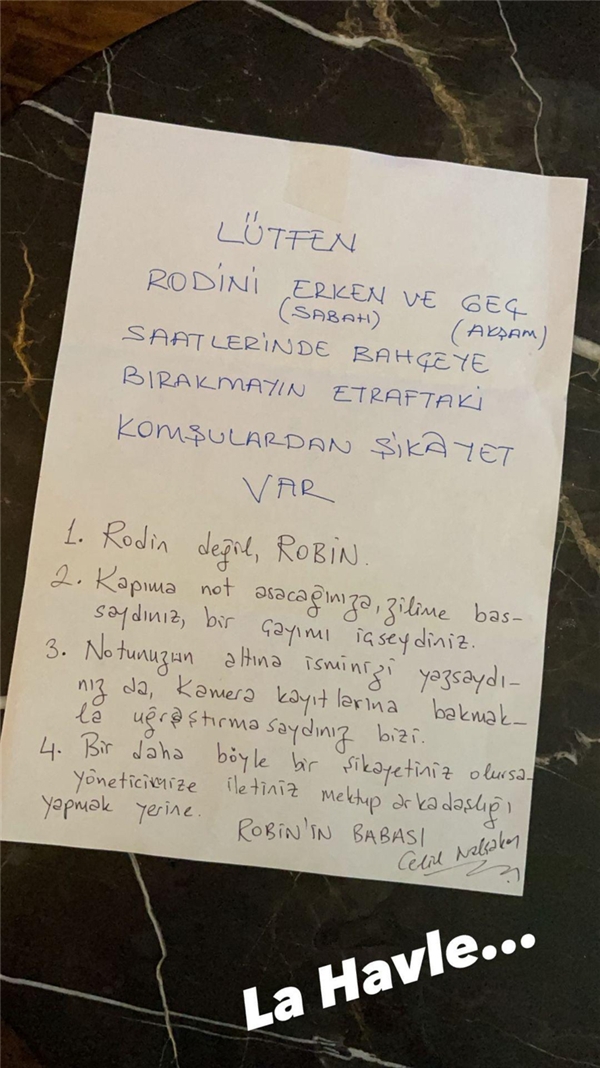 LÜTFEN
RODİNİ ERKEN VE GEÇ
(SABAH) (AKŞAM)
SAATLERİNDE BAHÇEYE
BIRAKMAYIN ETRAFTAKİ
KOMŞULARDAN ŞİKÂYET
VAR
1. Rodin değil, ROBİN.
2. Kapıma not asacağınıza, zilime bas-
saydınız, bir çayımı içseydiniz.
3. Notunuzun altına isminizi yazsaydı-
nız da, Kamera kayıtlarına bakmak-
la uğraştırmasaydınız bizi.
4. Bir daha böyle bir şikayetiniz olursa
yöneticimize iletiniz mektup arkadaşlığı
yapmak yerine.
ROBİN'İN BABASI
Celil Nalçakan
La Havle...